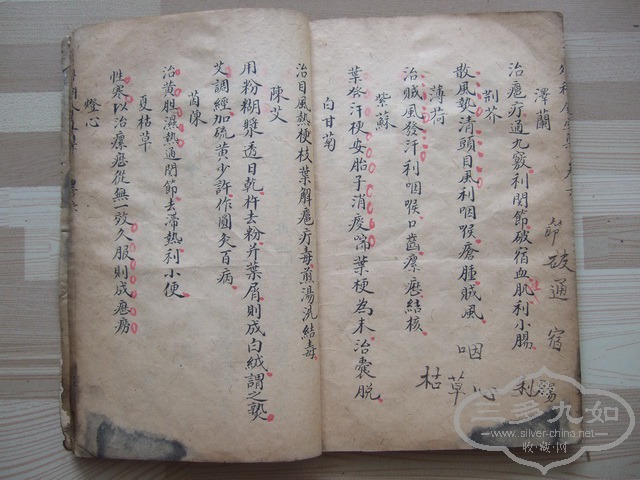 澤蘭
治癰疔通九竅利関節破宿血肌利小腸
荆芥
散風熱清頭目風利咽喉瘡腫賊風
薄荷
治賊風發汗利咽喉口齒瘰癧結核
紫蘇
葉發汗梗安胎子消痰喘葉梗為末治囊脱
白甘菊
治目風熱梗枝葉解癰疔毒煎湯洗結毒
陳艾
用粉糊漿透日乾杵去粉并葉屑則成白絨謂之熟
艾調經加硫黄少許作圓灸百病
茵陳
治黄胆濕熱通関節去滞熱利小便
夏枯草
性寒以治瘰癧從無一效久服則成癧癆
燈心
節破通宿
利腸
咽
心
草
枯
三多九如
www.silver-china.net
收·藏·网